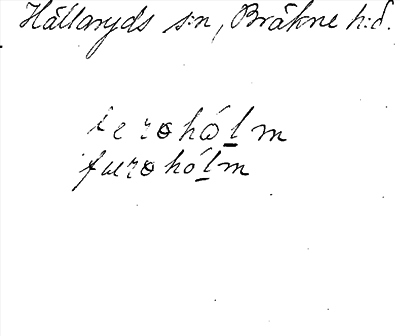 Hällaryds s:n, Bräkne h:d.
ferohólm
furohólm